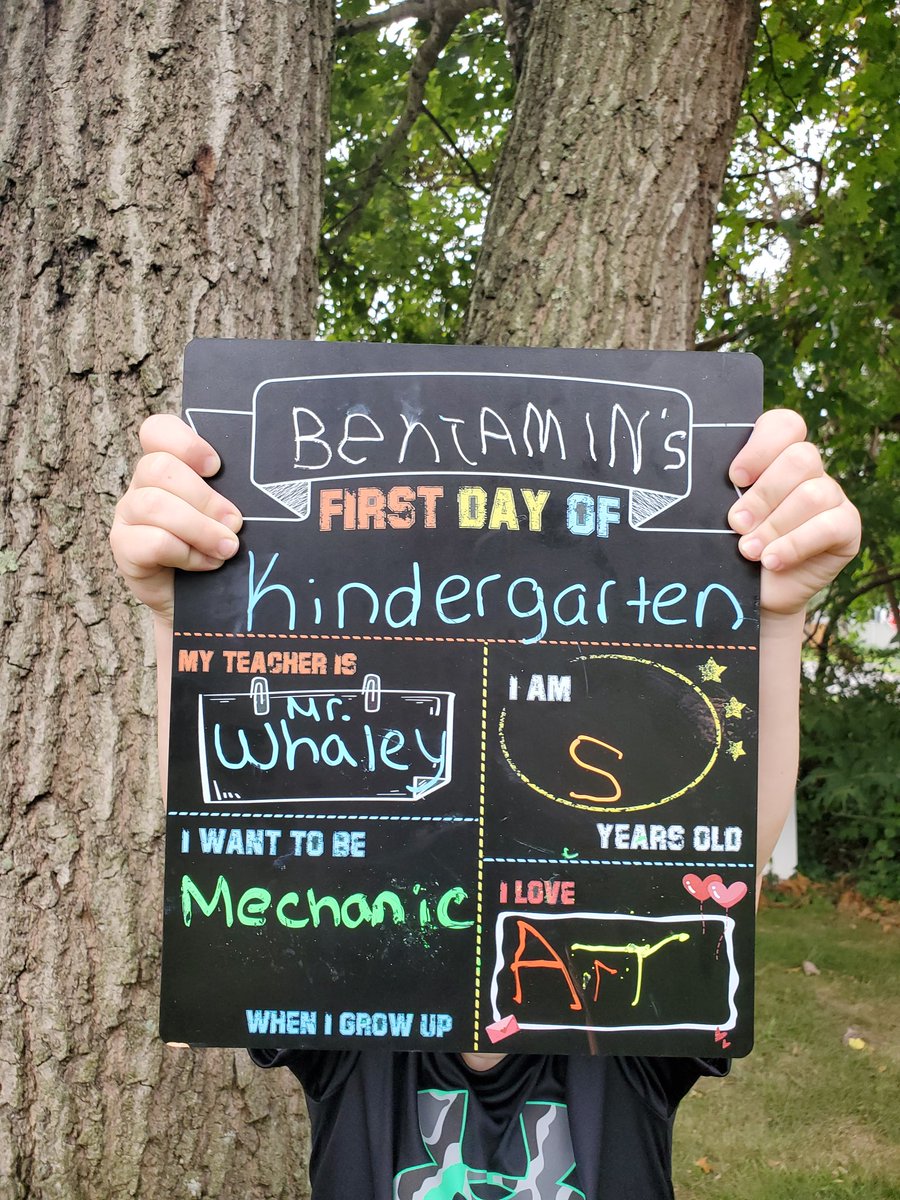 BenJAMIN's
FIRST DAY OF
Kindergarten
MY TEACHER IS
Mr.
Whaley
I AM
5
YEARS OLD
I WANT TO BE
Mechanic
WHEN I GROW UP
I LOVE
ArT